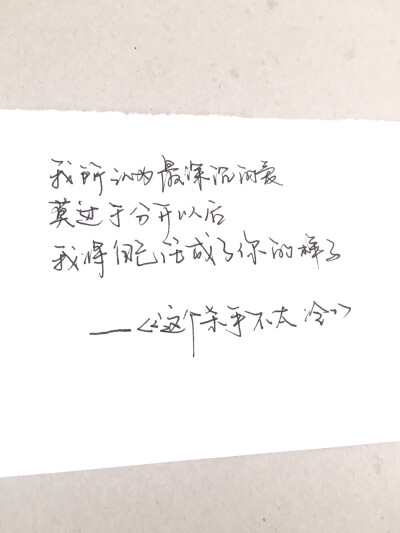 我所认为最深沉的爱
莫过于分开以后
我将自己活成了你的样子
——《这个杀手不太冷》